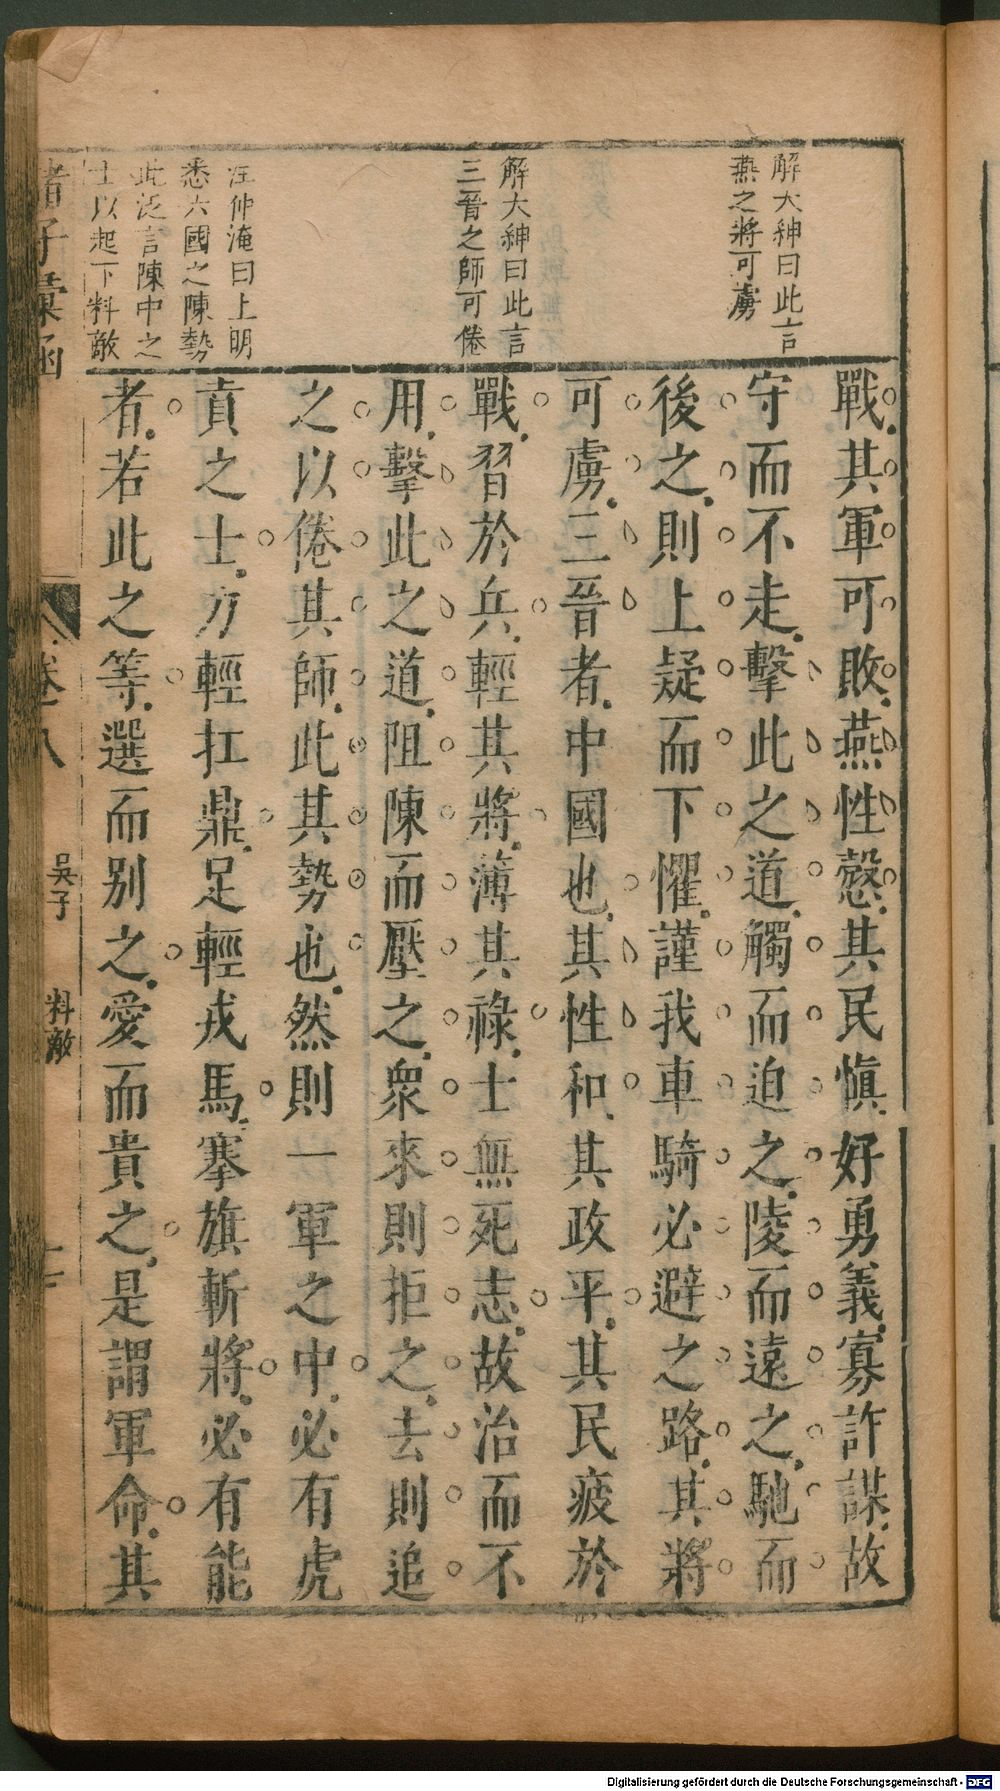 解大紳曰此言
燕之將可虜
解大紳曰此言
三晉之師可倦
汪仲淹曰上明
悉六國之陳勢
此泛言陳中之
士以起下料敵
戰其軍可敗燕性慤其民慎好勇義寡詐謀故
守而不走擊此之道觸而迫之陵而遠之馳而
後之則上疑而下懼謹我車騎必避之路其將
可虜三晉者中國也其性和其政平其民疲於
戰習於兵輕其將薄其祿士無死志故治而不
用擊此之道阻陳而壓之眾來則拒之去則追
之以倦其師此其勢也然則一軍之中必有虎
賁之士力輕扛鼎足輕戎馬搴旗斬將必有能
者若此之等選而別之愛而貴之是謂軍命其
諸子彙函
卷之八
吳子
料敵
Digitalisierung gefördert durch die Deutsche Forschungsgemeinschaft - DFG